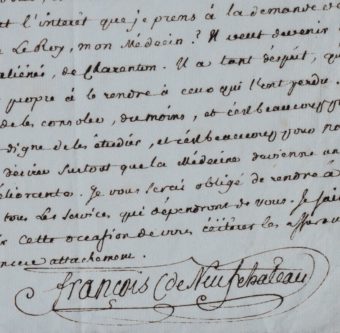 et l'intérêt que je prens à la demande
Le Roy, mon Médecin? Il veut devenir
aliénés, de Charenton. Il a tant d'esprit, qu'
propre à le rendre à ceux qui l'ont perdu.
de les consoler, du moins, et c'est beaucoup
digne de les étudier, et c'est beaucoup pour
surtout que la Médecine devienne un
Je vous serai obligé de rendre à
tous les services, qui dépendront de vous. Je
cette occasion de vous réitérer les
attachement.
françois (de Neufchateau